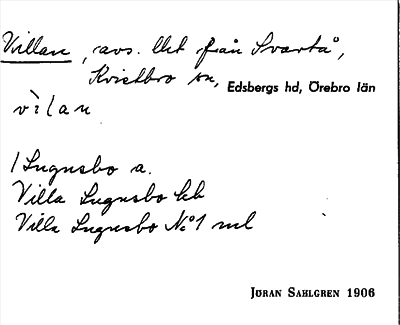 Villan, avs. llet från Svartå,
Kvistbro sn, Edsbergs hd, Örebro län
vìlan
/ Lugnsbo a.
Villa Lugnsbo kb
Villa Lugnsbo No1 ml
JÖRAN SAHLGREN 1906